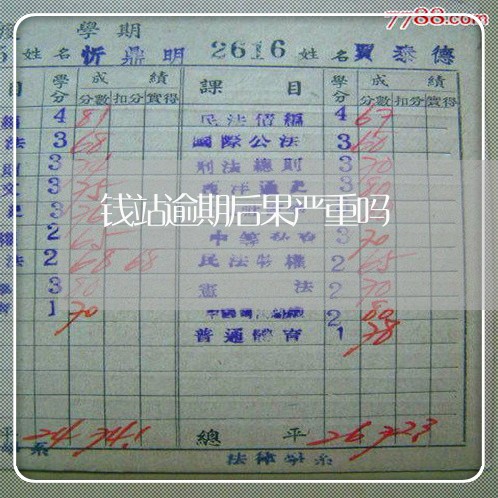 7788.com
學期
姓名 忻鼎明 2616 姓名 賈泰德
目 學分 成績 課目 學分 成績
分數 扣分 實得 分數 扣分 實得
4 81 民法債編 4 67
法 3 68 國際公法 3 60
3 刑法總則 3 70
3 75 西洋通史
钱站逾期后果严重吗
2 65 3 70
法 2 68 68 民法物權 2 65
3 80 憲法 2 70
1 70 2 80
普通體育 1 78
平 24 74.1 總平 26 72.3
系 法律學系